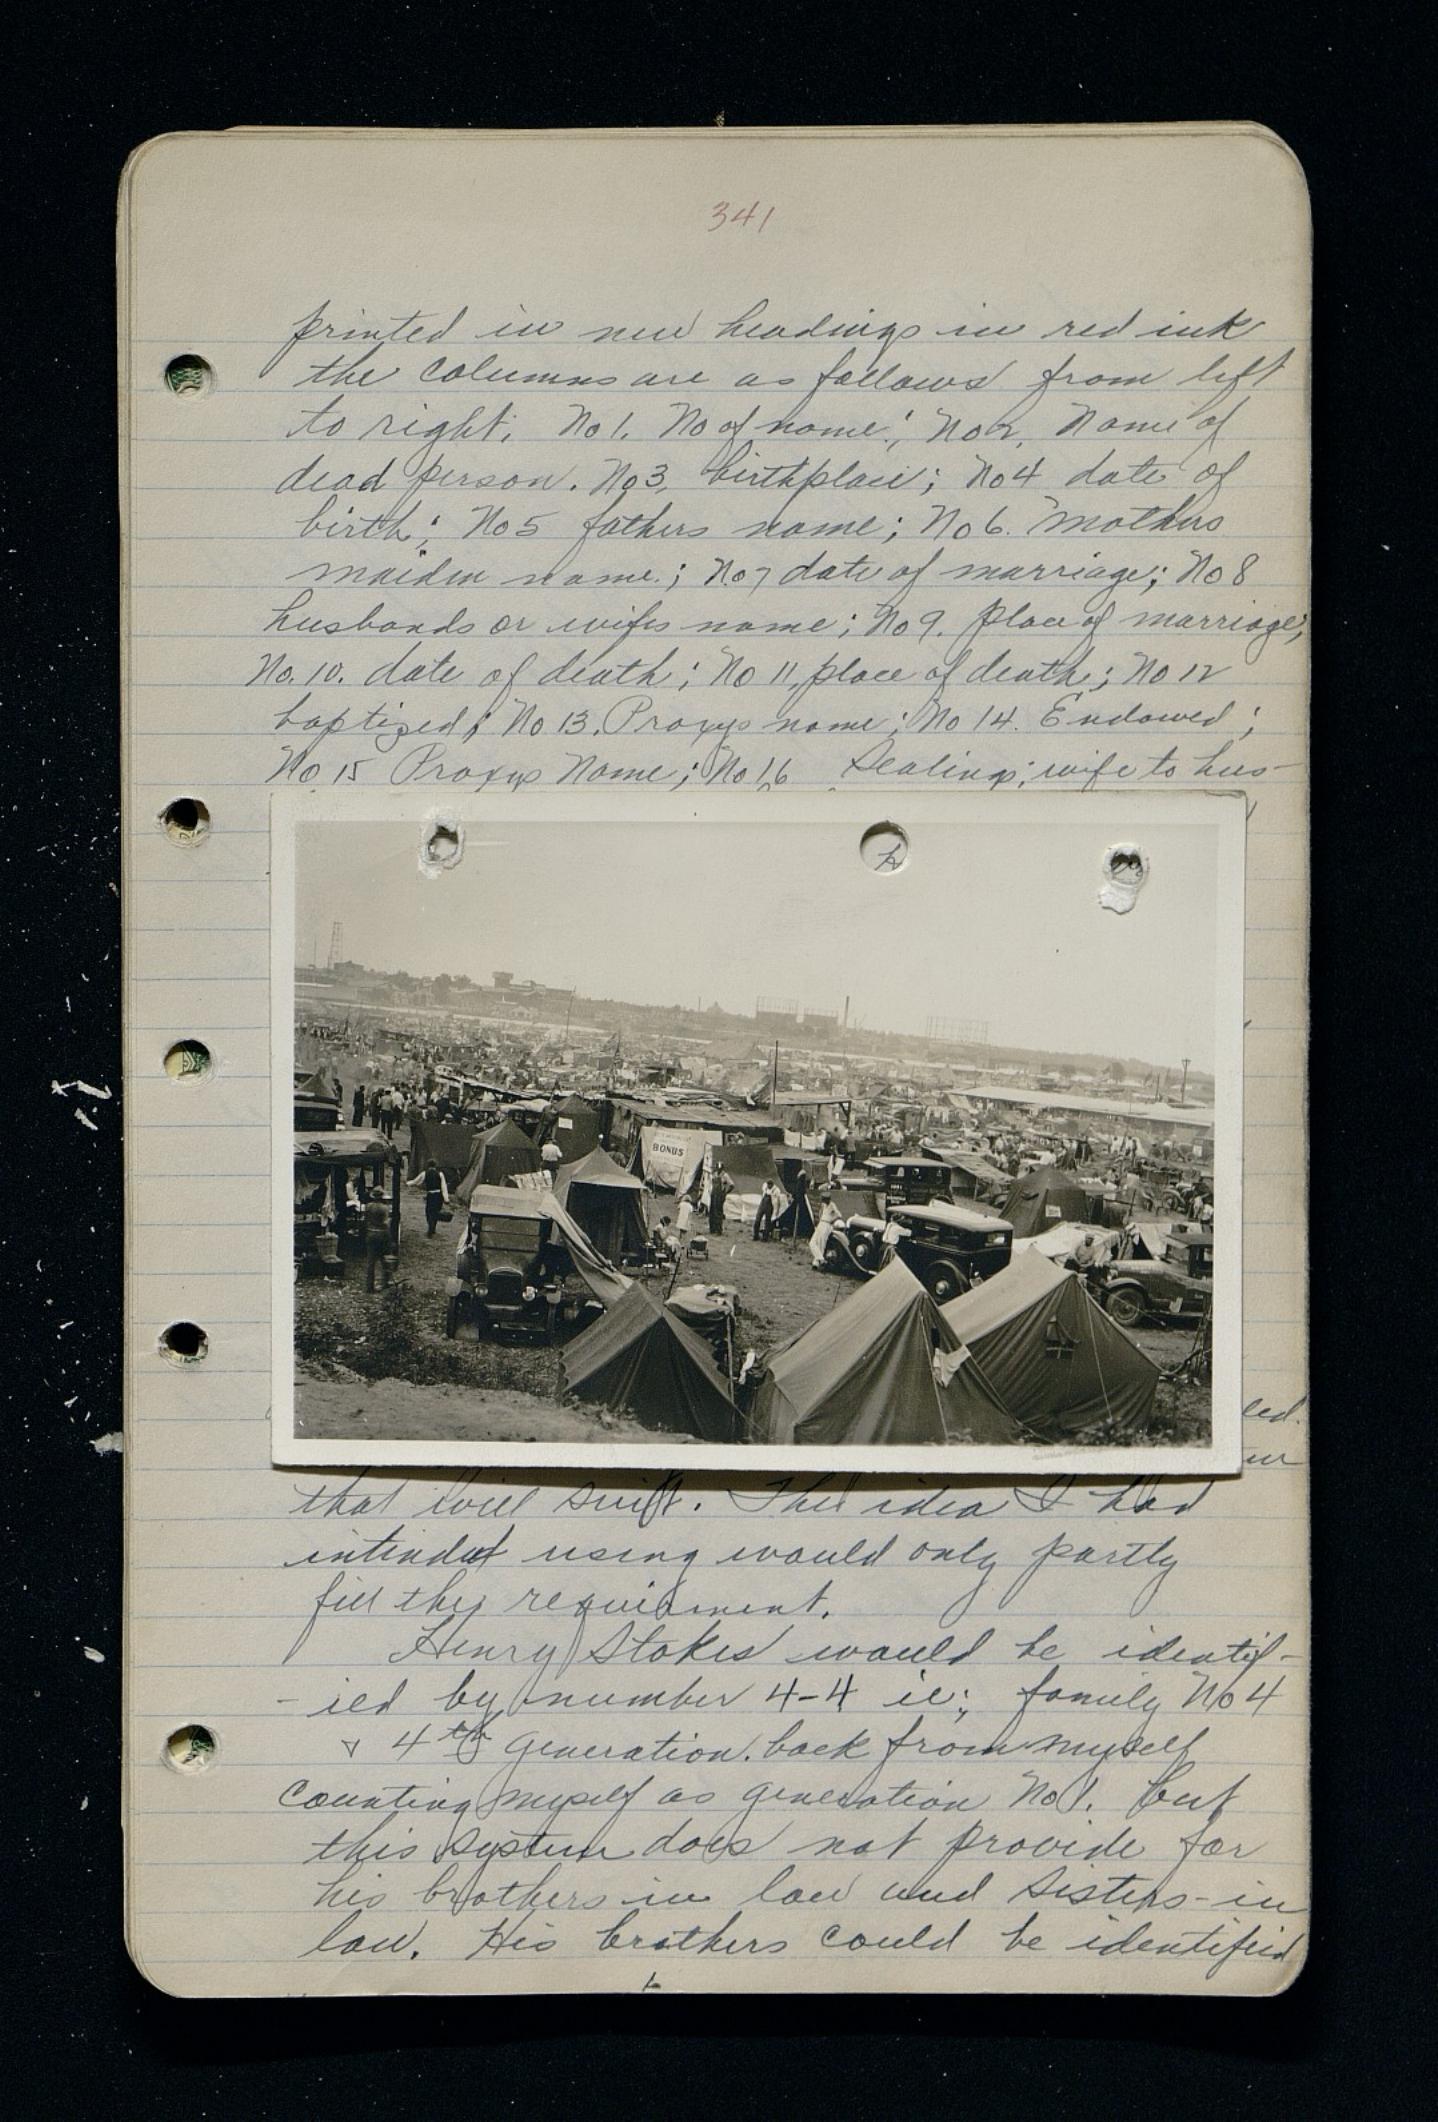 341
printed in new headings in red ink
the columns are as follows from left
to right. No 1. No of name; No 2, Name of
dead person. No 3, birthplace; No 4 date of
birth; No 5 fathers name; No 6. Mothers
maiden name.; No 7 date of marriage; No 8
husbands or wifes name; No 9. Place of marriage;
No. 10. date of death; No 11, place of death; No 12
baptized; No 13. Proxys name; No 14. Endowed;
No 15 Proxys Name; No 16 Sealings; wife to hus-
BONUS
led.
that will suit. The idea I had
intended using would only partly
fill the requirment.
Henry Stokes would be identif-
-ied by number 4-4 ie; family No 4
4th generation. back from myself
counting myself as generation No 1. but
this system does not provide for
his brothers in law and sisters-in
law. His brothers could be identified